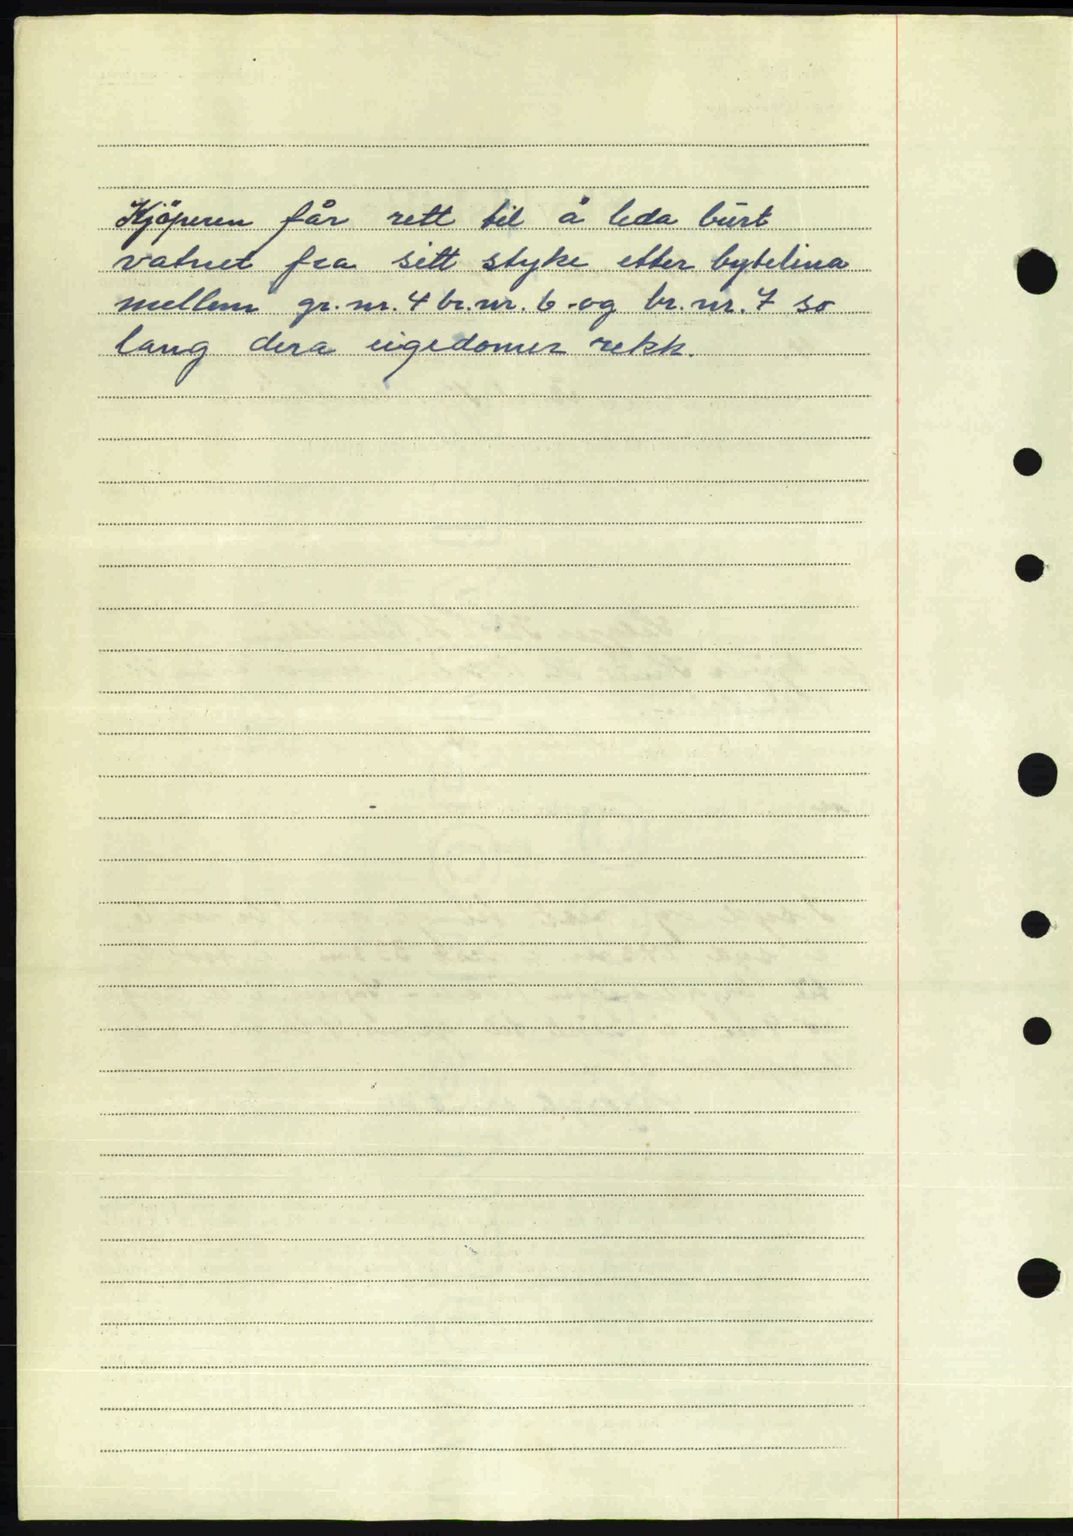 Kjöperen får rett til å leda burt
vatnet fra sitt styke etter bytelina
mellem gr. nr. 4 br. nr. 6 og br. nr. 7 so
lang dera eigedomer rekk.